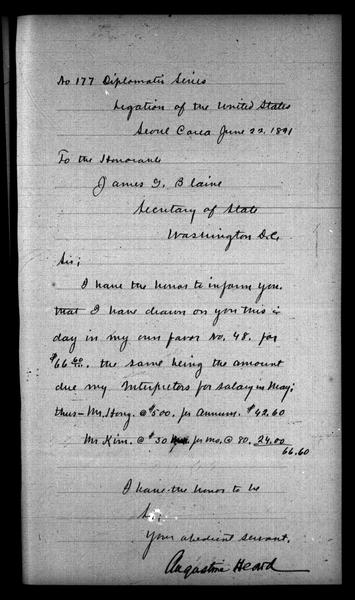 No 177 Diplomatic Series
Legation of the United States
Seoul Corea June 22, 1891
To the Honorable
James G. Blaine
Secretary of State
Washington D.C.
Sir;
I have the honor to inform you
that I have drawn on you this
day in my own favor No. 48. for
$66 60. the same being the amount
due my Interpreters for salary in May;
thus – Mr. Hong. @ $500. per Annum. $42.60
Mr Kim. @ $30 per mo. @ 80. 24.00
66.60
I have the honor to be
Sir;
Your obedient servant,
Augustine Heard